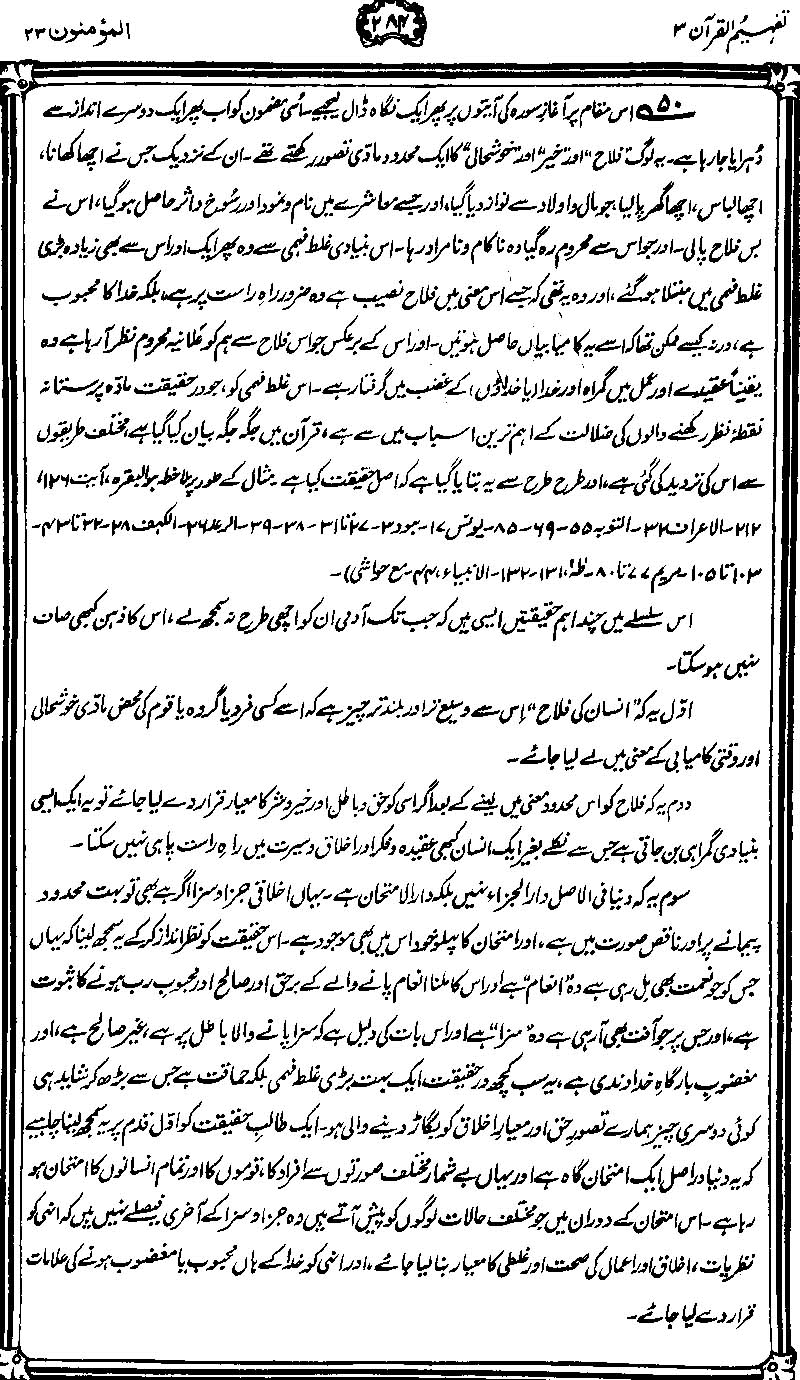 تفہیم القرآن ۳
۲۸۴
المؤمنون ۲۳
۵۰ اس مقام پر آغازِ سورہ کی آیتوں پر پھر ایک نگاہ ڈال لیجیے۔ اُسی مضمون کو اب پھر ایک دوسرے انداز سے
دُہرایا جارہا ہے۔ یہ لوگ ”فلاح“ اور ”خیر“ اور ”خوشحالی“ کا ایک محدود مادّی تصور رکھتے تھے۔ ان کے نزدیک جس نے اچھا کھانا،
اچھا لباس، اچھا گھر پالیا، جو مال و اولاد سے نواز دیا گیا، اور جسے معاشرے میں نام و نمود اور رسُوخ و اثر حاصل ہوگیا، اس نے
بس فلاح پالی۔ اور جو اس سے محروم رہ گیا وہ ناکام و نامراد رہا۔ اس بنیادی غلط فہمی سے وہ پھر ایک اور اس سے بھی زیادہ بڑی
غلط فہمی میں مبتلا ہوگئے، اور وہ یہ تھی کہ جسے اس معنی میں فلاح نصیب ہے وہ ضرور راہِ راست پر ہے، بلکہ خدا کا محبوب
ہے، ورنہ کیسے ممکن تھا کہ اسے یہ کامیابیاں حاصل ہوتیں۔ اور اس کے برعکس جو اس فلاح سے ہم کو علانیہ محروم نظر آرہا ہے وہ
یقیناً عقیدے اور عمل میں گمراہ اور خدا (یا خداؤں) کے غضب میں گرفتار ہے۔ اس غلط فہمی کو، جو درحقیقت مادّہ پرستانہ
نقطۂ نظر رکھنے والوں کی ضلالت کے اہم ترین اسباب میں سے ہے، قرآن میں جگہ جگہ بیان کیا گیا ہے، مختلف طریقوں
سے اس کی تردید کی گئی ہے، اور طرح طرح سے یہ بتایا گیا ہے کہ اصل حقیقت کیا ہے (مثال کے طور پر ملاحظہ ہو البقرہ، آیت ۱۲۶،
۲۱۲۔ الاعراف ۳۲۔ التوبہ ۵۵۔ ۶۹۔ ۸۵۔ یونس ۱۷۔ ہود ۳۔ ۲۷ تا ۳۱۔ ۳۸۔ ۳۹۔ الرعد ۲۶۔ الکہف ۲۸۔ ۳۲ تا ۴۳۔
۱۰۳ تا ۱۰۵۔ مریم ۷۷ تا ۸۰۔ طٰہٰ، ۱۳۱۔ ۱۳۲۔ الانبیاء، ۴۴۔ مع حواشی)۔
اس سلسلے میں چند اہم حقیقتیں ایسی ہیں کہ جب تک آدمی ان کو اچھی طرح نہ سمجھ لے، اس کا ذہن کبھی صاف
نہیں ہوسکتا۔
اوّل یہ کہ ”انسان کی فلاح“ اِس سے وسیع تر اور بلند تر چیز ہے کہ اسے کسی فرد یا گروہ یا قوم کی محض مادّی خوشحالی
اور وقتی کامیابی کے معنی میں لے لیا جائے۔
دوم یہ کہ فلاح کو اس محدود معنی میں لینے کے بعد اگر اسی کو حق و باطل اور خیر و شر کا معیار قرار دے لیا جائے تو یہ ایک ایسی
بنیادی گمراہی بن جاتی ہے جس سے نکلے بغیر ایک انسان کبھی عقیدہ و فکر اور اخلاق و سیرت میں راہِ راست پا ہی نہیں سکتا۔
سوم یہ کہ دنیا فی الاصل دار الجزاء نہیں بلکہ دار الامتحان ہے۔ یہاں اخلاقی جزا و سزا اگر ہے بھی تو بہت محدود
پیمانے پر اور ناقص صورت میں ہے، اور امتحان کا پہلو خود اس میں بھی موجود ہے۔ اس حقیقت کو نظر انداز کرکے یہ سمجھ لینا کہ یہاں
جس کو جو نعمت بھی مل رہی ہے وہ ”انعام“ ہے اور اس کا ملنا انعام پانے والے کے برحق اور صالح اور محبوبِ رب ہونے کا ثبوت
ہے، اور جس پر جو آفت بھی آرہی ہے وہ ”سزا“ ہے اور اس بات کی دلیل ہے کہ سزا پانے والا باطل پر ہے، غیر صالح ہے، اور
مغضوبِ بارگاہِ خداوندی ہے، یہ سب کچھ درحقیقت ایک بہت بڑی غلط فہمی بلکہ حماقت ہے جس سے بڑھ کر شاید ہی
کوئی دوسری چیز ہمارے تصورِ حق اور معیارِ اخلاق کو بگاڑ دینے والی ہو۔ ایک طالبِ حقیقت کو اوّل قدم پر یہ سمجھ لینا چاہیے
کہ یہ دنیا دراصل ایک امتحان گاہ ہے اور یہاں بے شمار مختلف صورتوں سے افراد کا، قوموں کا اور تمام انسانوں کا امتحان ہو
رہا ہے۔ اس امتحان کے دوران میں جو مختلف حالات لوگوں کو پیش آتے ہیں وہ جزا و سزا کے آخری فیصلے نہیں ہیں کہ انہی کو
نظریات، اخلاق اور اعمال کی صحت اور غلطی کا معیار بنا لیا جائے، اور انہی کو خدا کے ہاں محبوب یا مغضوب ہونے کی علامات
قرار دے لیا جائے۔